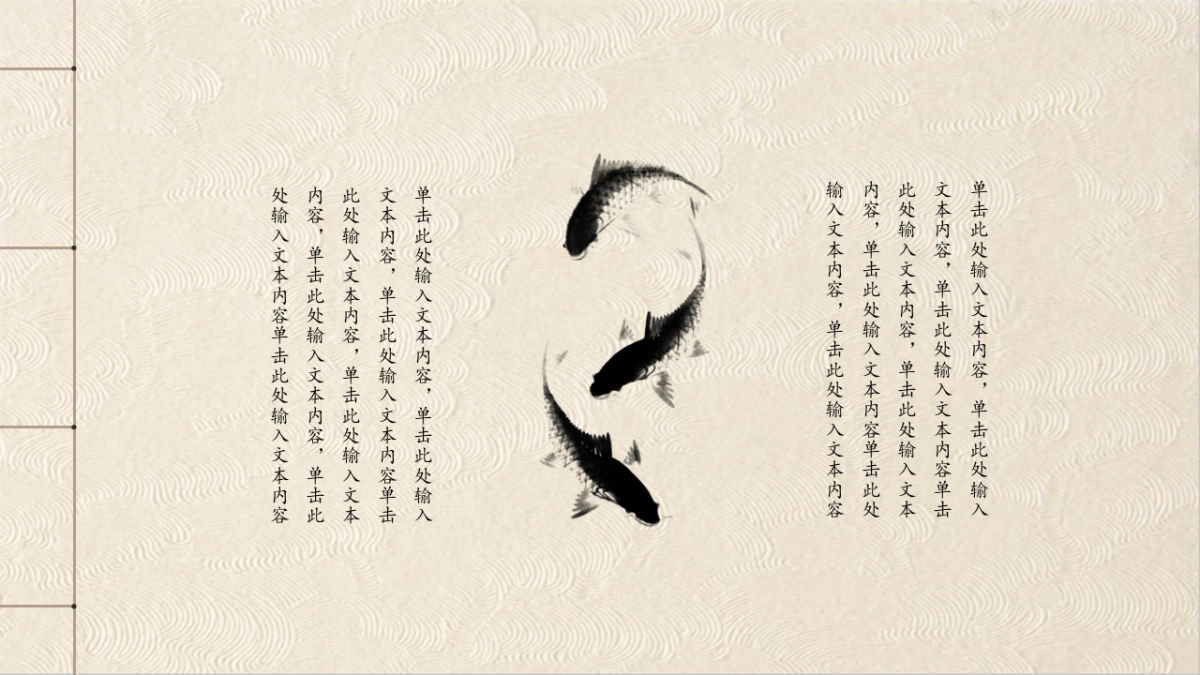 单击此处输入文本内容，单击此处输入
文本内容，单击此处输入文本内容单击
此处输入文本内容，单击此处输入文本
内容，单击此处输入文本内容单击此处
输入文本内容，单击此处输入文本内容
单击此处输入文本内容，单击此处输入
文本内容，单击此处输入文本内容单击
此处输入文本内容，单击此处输入文本
内容，单击此处输入文本内容，单击此
处输入文本内容单击此处输入文本内容